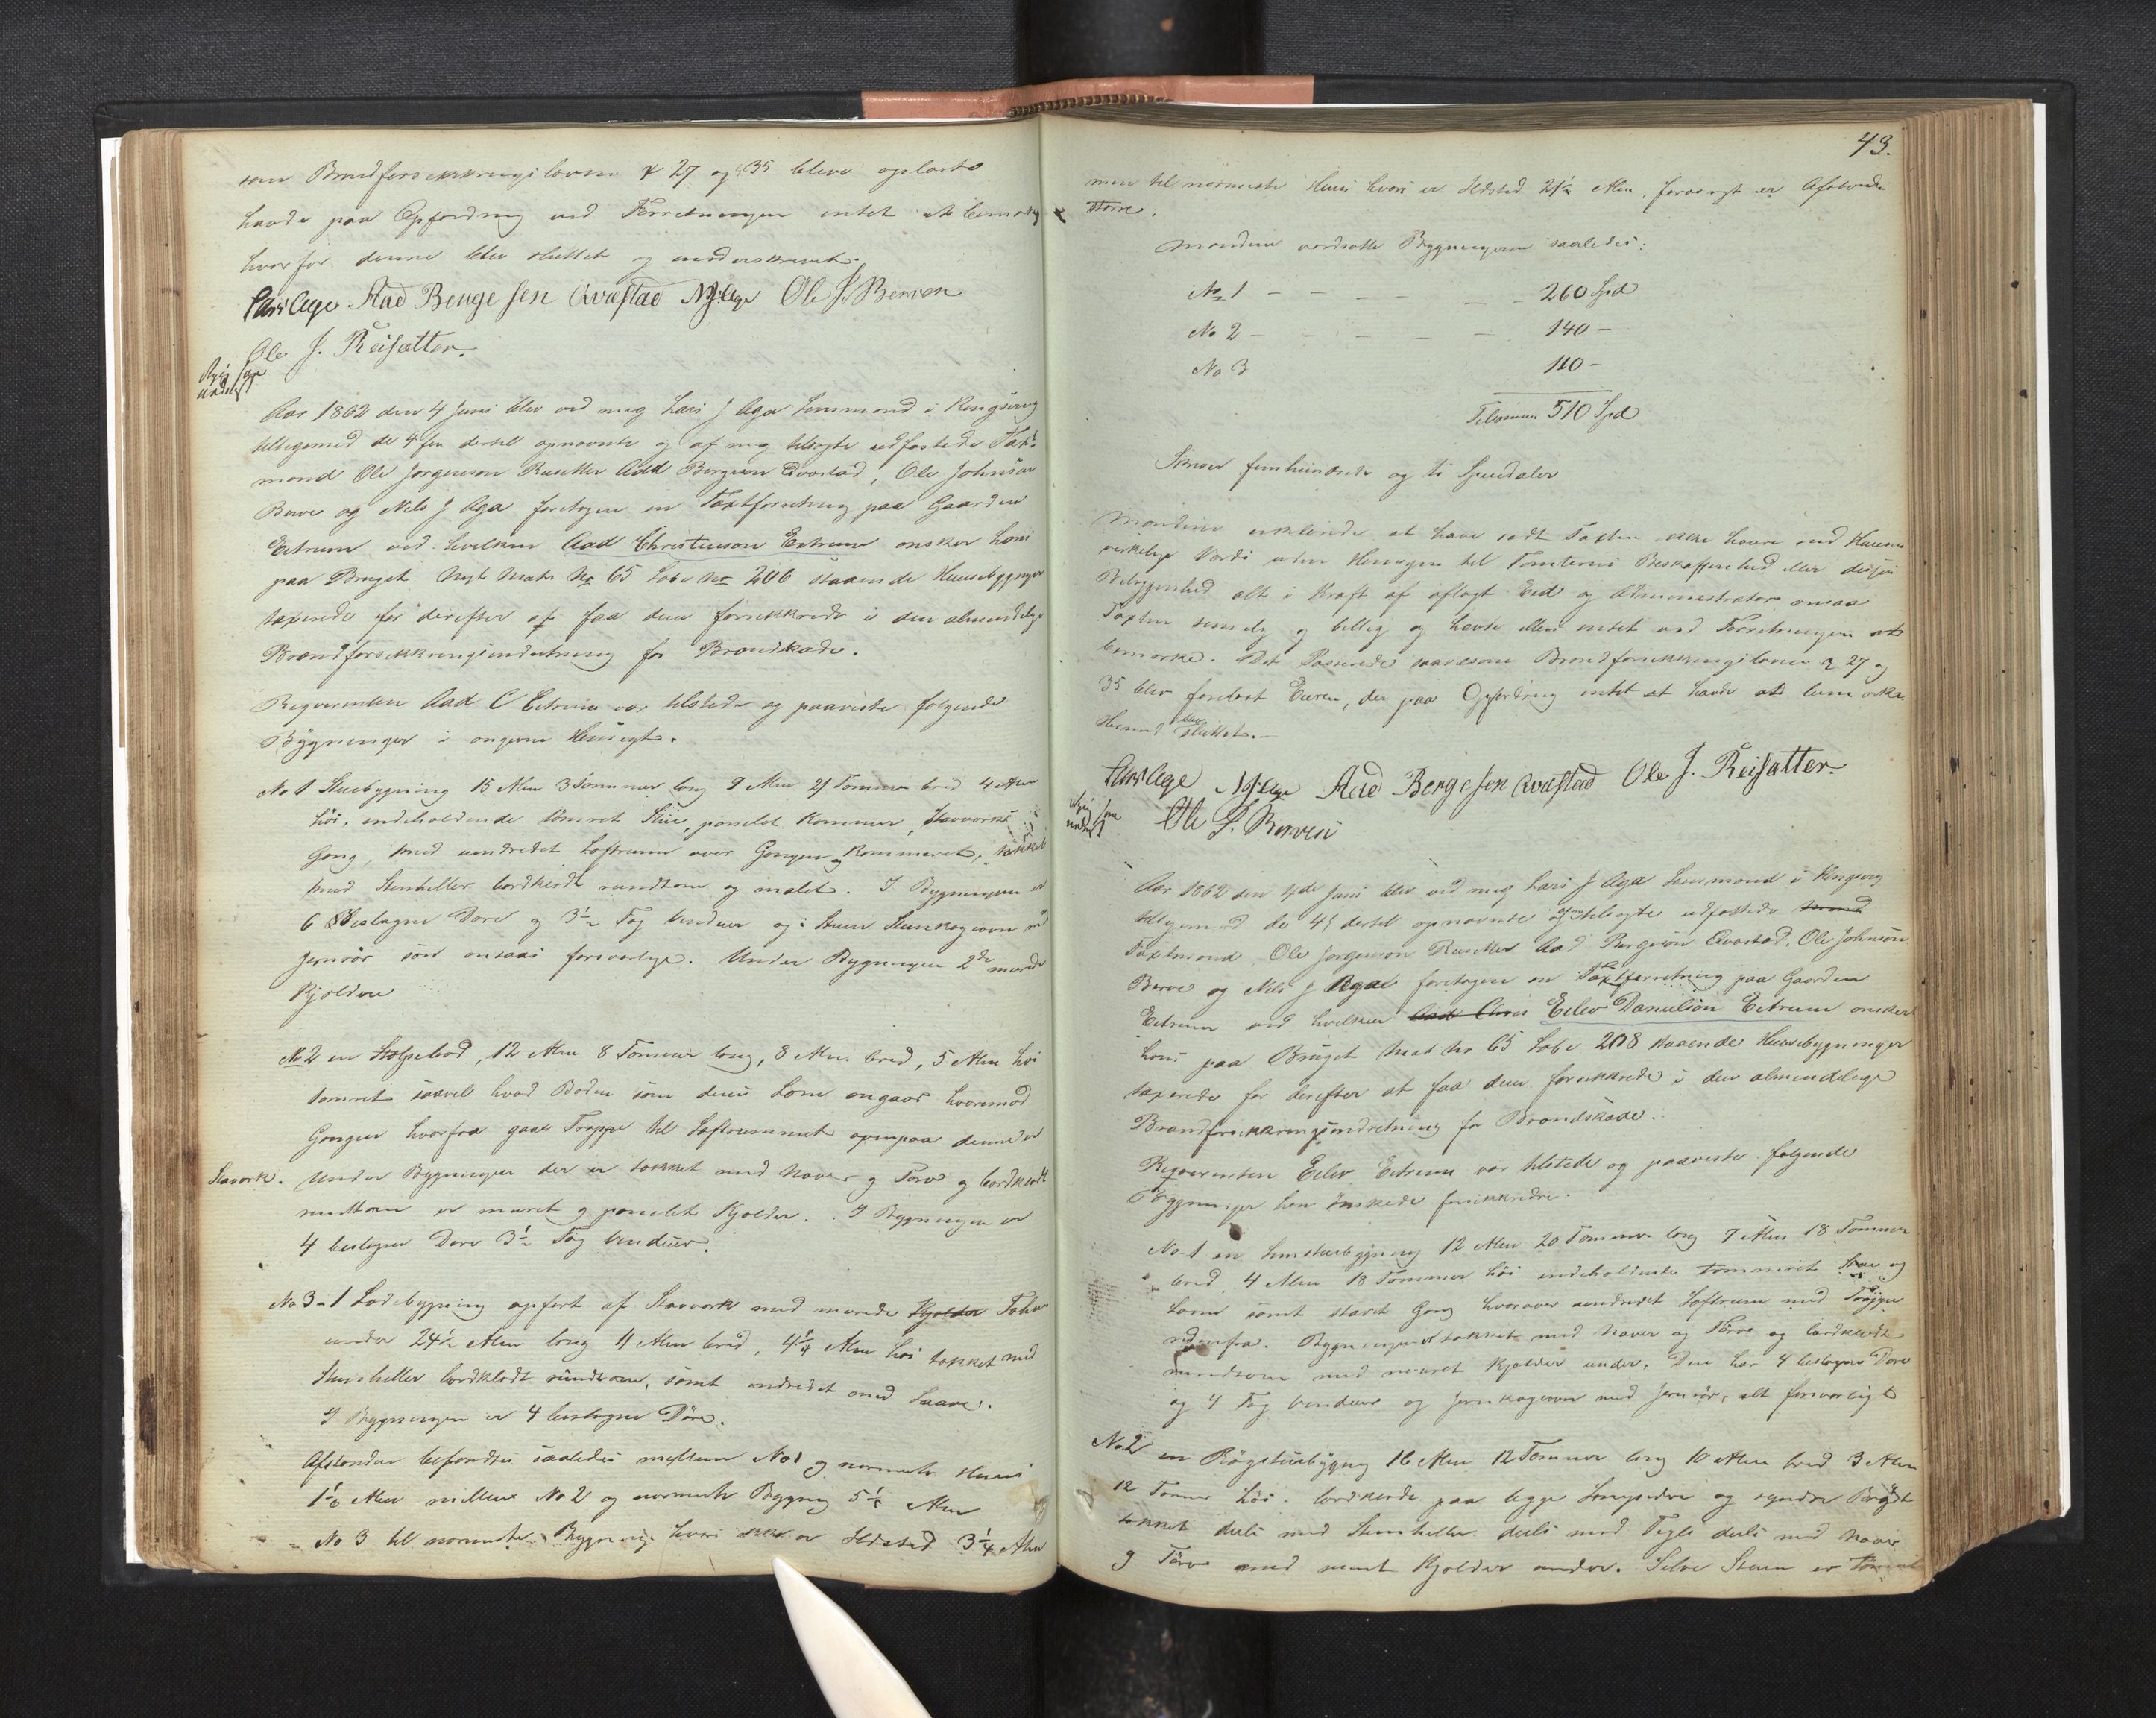 som Brandforsikkringslovens § 27 og 35 bleve oplæste
havde paa Opfordring ved Forretningen intet at bemærke
hvorfor denne blev sluttet og underskrevet.
Lars Aga Aad Bergesen Qvæstad N J Aga Ole J. Berven
Ole J. Reisæter.
Aar 1862 den 4 Juni blev ved mig Lars J Aga Lensmand i Kingservig
tilligemed de 4 fire dertil opnævnte og af mig tilsagte edfæstede Taxt-
mænd Ole Jørgensen Reisæter Aad Bergesen Qvæstad, Ole Johnsøn
Berve og Nils J Aga foretagen en Taxtforretning paa Gaarden
Eitrum ved hvilken Aad Christensøn Eitrum ønsker hans
paa Bruget Nyt Matr No 65 Løbe No 206 staaende Huusebygninger
taxerede for derefter at faa dem forsikkrede i den almindelige
Brandforsikkringsindretning for Brandskade.
Reqvirenten Aad C Eitrum var tilstede og paaviste følgende
Bygninger i angivne Hensigt.
No 1 Stuebygning 15 Alen 3 Tommer lang 9 Alen 21 Tommer bred 4 Alen
høi, indeholdende tømret Stue, panelet Kammer, Stavværks
Gang, med uindredet Loftrum over Gangen og Kammeret, tækket
med Steenheller bordklædt rundtom og malet. I Bygningen er
6 beslagne Døre og 3½ Fag Vinduer og i Stuen Steenkagovn med
Jernrør som ansaaes forsvarlige. Under Bygningen 2de murede
Kjældere
No 2 en Stolpebod, 12 Alen 8 Tommer lang, 8 Alen bred, 5 Alen høi
tømret saavel hvad Boden som dens Lem angaar hvorimod
Gangen hvorfra gaar Trappe til Loftrummet ovenpaa denne er
Stavværk. Under Bygningen der er tækket med Næver og Torv og bordklædt
rundtom er muret og panelet Kjælder. I Bygningen er
4 beslagne Døre 3½ Fag Vinduer.
No 3 - 1 Ladebygning opført af Stavværk med murede Kjælder Tofter
under 24½ Alen lang 11 Alen bred, 4¼ Alen høi tækket med
Steenheller bordklædt rundtom, samt indredet med Laave.
I Bygningen er 4 beslagne Døre.
Afstanden befandtes saaledes mellem No 1 og nærmeste Huus
1⅛ Alen mellem No 2 og nærmeste Bygning 5⅛ Alen
No 3 til nærmeste Bygning hvori ikke er Ildsted 3¼ Alen
43.
men til nærmeste Huus hvori er Ildsted 21½ Alen, forøvrigt er Afstanden
større.
Mændene værdsatte Bygningerne saaledes:
No 1 - - - - - - 260 Spd
No 2 - - - - - 140 -
No 3 110 -
Tilsammen 510 Spd
Skriver femhundrede og ti Speciedaler
Mændene erklærede at have sadt Taxten ikke høiere end Husenes
virkelige Værdi uden Hensyn til Tomternes Beskaffenhed eller disses
Beliggenhed alt i Kraft af aflagt Eed og Administrator ansaa
Taxten rimelig og billig og havde ellers intet ved Forretningen at
bemærke. Det Passerede saavelsom Brandforsikkringslovens § 27 og
35 blev forelæst Eieren, der paa Opfordring intet havde at bemærke
Hermed sluttet.
Lars Aga N J Aga Aad Bergesen Qvæstad Ole J. Reisæter.
Ole J. Berven
Aar 1862 den 4de Juni blev ved mig Lars J Aga Lensmand i Kingservig
tilligemed de 4 dertil opnævnte og af mig tilsagte edfæstede
Taxtmænd, Ole Jørgensøn Reisæter Aad Bergesøn Qvæstad, Ole Johnsøn
Berve og Nils J Aga foretagen en Taxtforretning paa Gaarden
Eitrum ved hvilken Aad Chris Eilev Danielsøn Eitrum ønsker
hans paa Bruget Mat No 65 Løbe 208 staaende Huusebygninger
taxerede for derefter at faa dem forsikkrede i den almindelige
Brandforsikkringsindretning for Brandskade.
Reqvirenten Eilev Eitrum var tilstede og paaviste følgende
Bygninger han ønskede forsikkrede.
No 1 en Lemstuebygning 12 Alen 20 Tommer lang 7 Alen 18 Tommer
bred 4 Alen 18 Tommer høi indeholdende tømmeret Stue og
Lem samt stavet Gang hvorover uindredet Loftrum med Trappe
nedenfra. Bygningen er tækket med Næver og Torv og bordklædt
rundtom med muret Kjælder under. Den har 4 beslagne Døre
og 4 Fag Vinduer og Jernkagovn med Jernrør, alt forsvarligt
No 2 en Røgstuebygning 16 Alen 12 Tommer lang 10 Alen bred 3 Alen
12 Tommer høi. bordklædt paa begge Langsider og søndre Brøst
tækket deels med Steenheller deels med Tegl deels med Næver
og Torv med muret Kjælder under. Selve Stuen er tømret